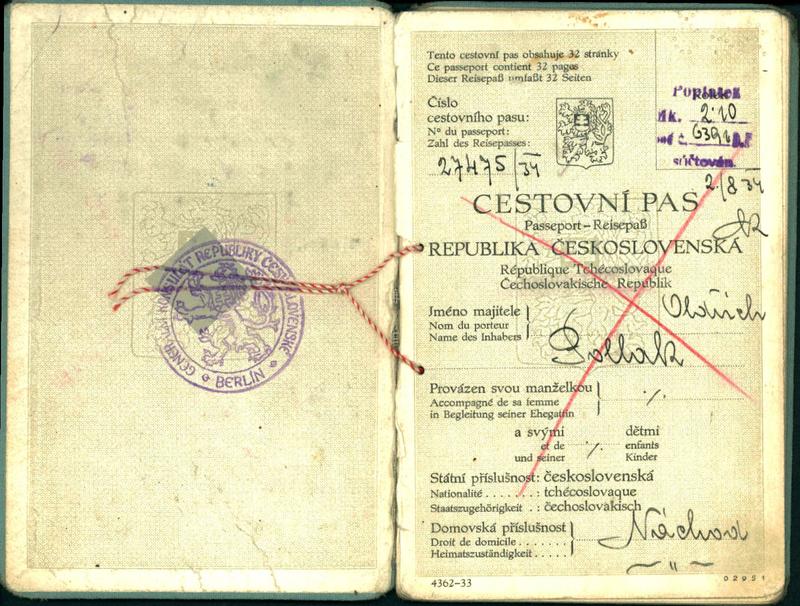 GENERÁLNÍ KONSULÁT REPUBLIKY ČESKOSLOVENSKÉ
BERLÍN
Tento cestovní pas obsahuje 32 stránky
Ce passeport contient 32 pages
Dieser Reisepaß umfaßt 32 Seiten
Číslo
cestovního pasu:
No du passeport:
Zahl des Reisepasses:
27475/34
Poplatek
Mk. 2.10
súčtován.
2./8 34
CESTOVNÍ PAS
Passeport–Reisepaß
REPUBLIKA ČESKOSLOVENSKÁ
République Tchécoslovaque
Čechoslovakische Republik
Jméno majitele
Nom du porteur
Name des Inhabers
Oldřich
Pollak
Provázen svou manželkou
Accompagné de sa femme
in Begleitung seiner Ehegattin
·/.
a svými dětmi
et de ·/. enfants
und seiner Kinder
Státní příslušnost: československá
Nationalité . . . . . . . : tchécoslovaque
Staatszugehörigkeit . : čechoslovakisch
Domovská příslušnost
Droit de domicile . . . . . . .
Heimatszuständigkeit . . . . .
Náchod
— " —
4362–33
02951